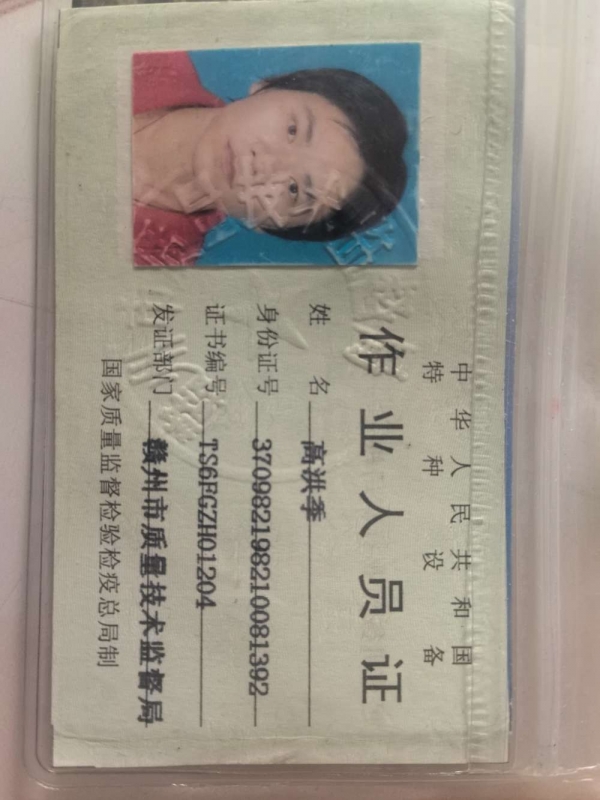 中华人民共和国
特种设备
作业人员证
姓名 高洪季
身份证号 370982198210081392
证书编号 TS6FGZH01204
发证部门 赣州市质量技术监督局
国家质量监督检验检疫总局制